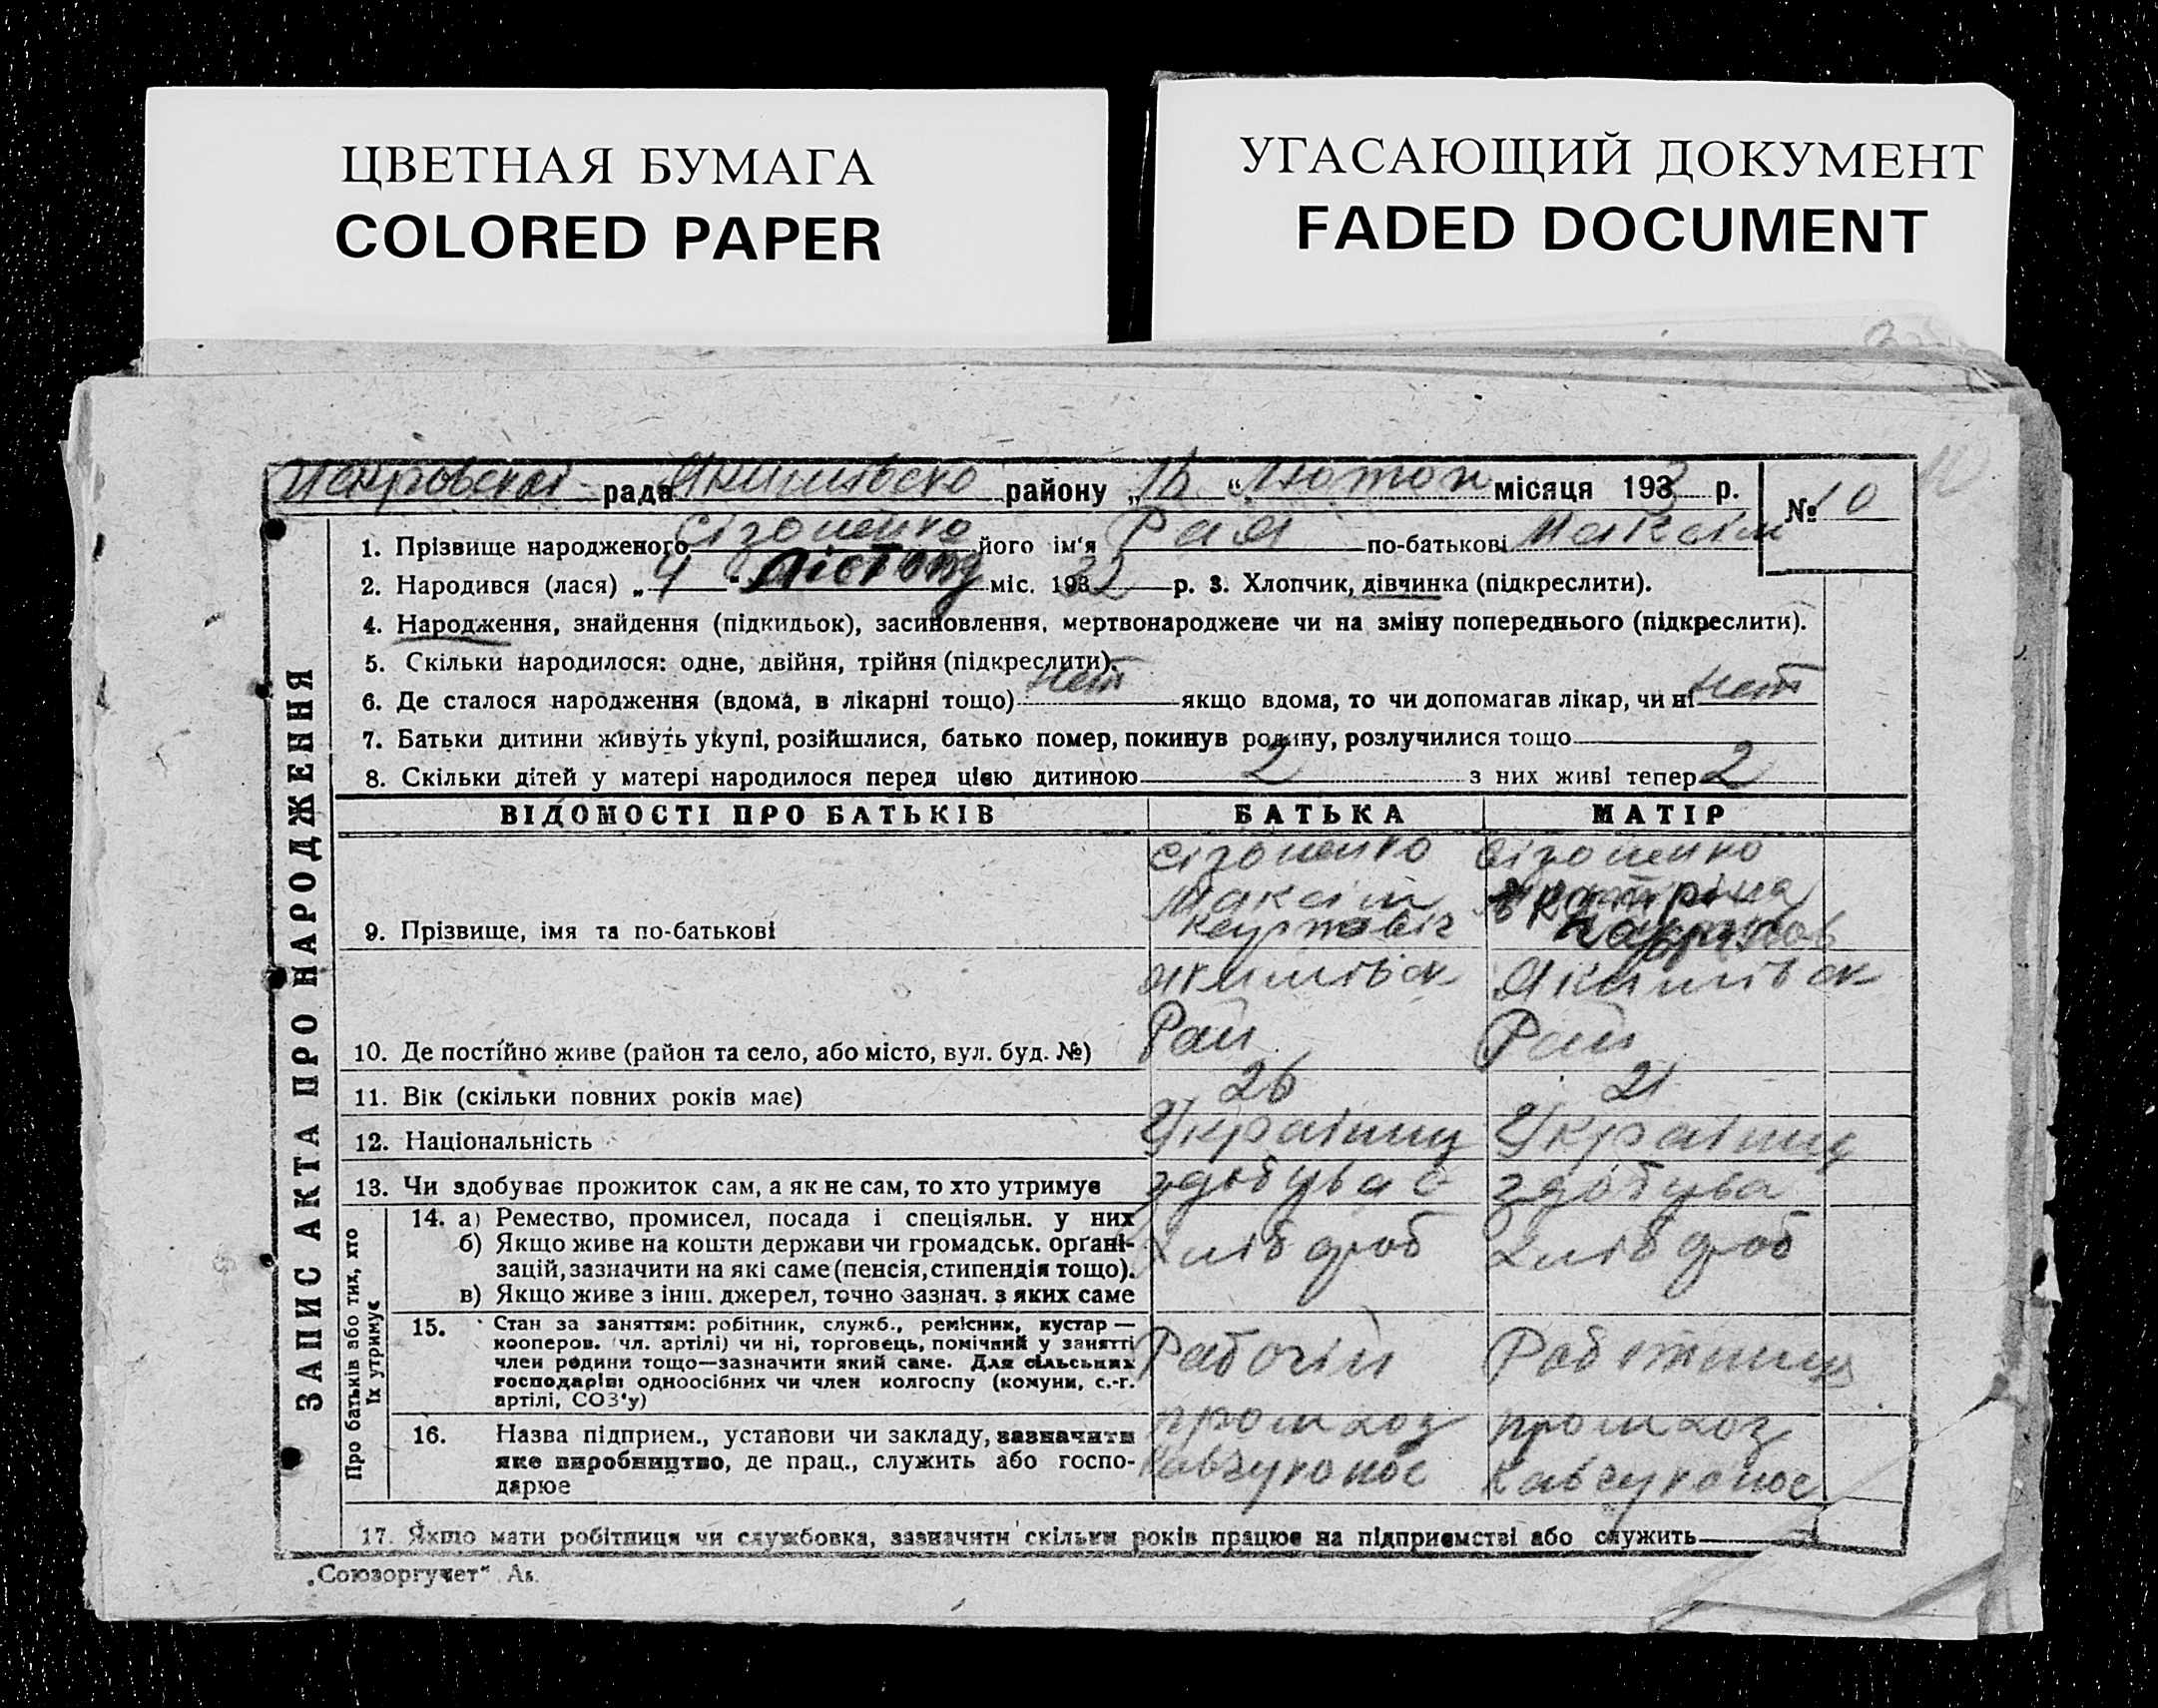 ЦВЕТНАЯ БУМАГА
COLORED PAPER
УГАСАЮЩИЙ ДОКУМЕНТ
FADED DOCUMENT
рада району „16“ місяця 1933 р. № 10
1. Прізвище народженого Сізоненко його ім'я Рая по-батькові Максім
2. Народився (лася) „4 " Лістопад міс. 1932 р. 3. Хлопчик, дівчинка (підкреслити).
4. Народження, знайдення (підкидьок), засиновлення, мертвонароджене чи на зміну попереднього (підкреслити).
5. Скільки народилося: одне, двійня, трійня (підкреслити).
6. Де сталося народження (вдома, в лікарні тощо) нет якщо вдома, то чи допомагав лікар, чи ні нет
7. Батьки дитини живуть укупі, розійшлися, батько помер, покинув родину, розлучилися тощо
8. Скільки дітей у матері народилося перед цією дитиною 2 з них живі тепер 2
ЗАПИС АКТА ПРО НАРОДЖЕННЯ
ВІДОМОСТІ ПРО БАТЬКІВ БАТЬКА МАТІР
Сізоненко Сізоненко
Максім
9. Прізвище, імя та по-батькові
Якимівск Якимівск
10. Де постійно живе (район та село, або місто, вул. буд. №) Рай Рай
11. Вік (скільки повних років має) 26 21
12. Національність Украінц Украінц
13. Чи здобуває прожиток сам, а як не сам, то хто утримує здобував здобува
Про батьків або тих, хто
їх утримує
14. а) Ремество, промисел, посада і спеціяльн. у них
б) Якщо живе на кошти держави чи громадськ. орґані- Хлібороб Хлібороб
зацій, зазначити на які саме (пенсія, стипендія тощо).
в) Якщо живе з інш. джерел, точно зазнач. з яких саме
15. Стан за заняттям: робітник, служб., ремісник, кустар —
кооперов. (чл. артілі) чи ні, торговець, помічний у занятті
член родини тощо—зазначити який саме. Для сільських Рабочій Работниц
господарів: одноосібних чи член колгоспу (комуни, с.-г.
артілі, СОЗ'у)
промхоз промхоз
16. Назва підприєм., установи чи закладу, зазначити
яке виробництво, де прац., служить або госпо- Кавчуконос Кавчуконос
дарює
17. Якщо мати робітниця чи службовка, зазначити скільки років працює на підприємстві або служить
„Союзоргучет"